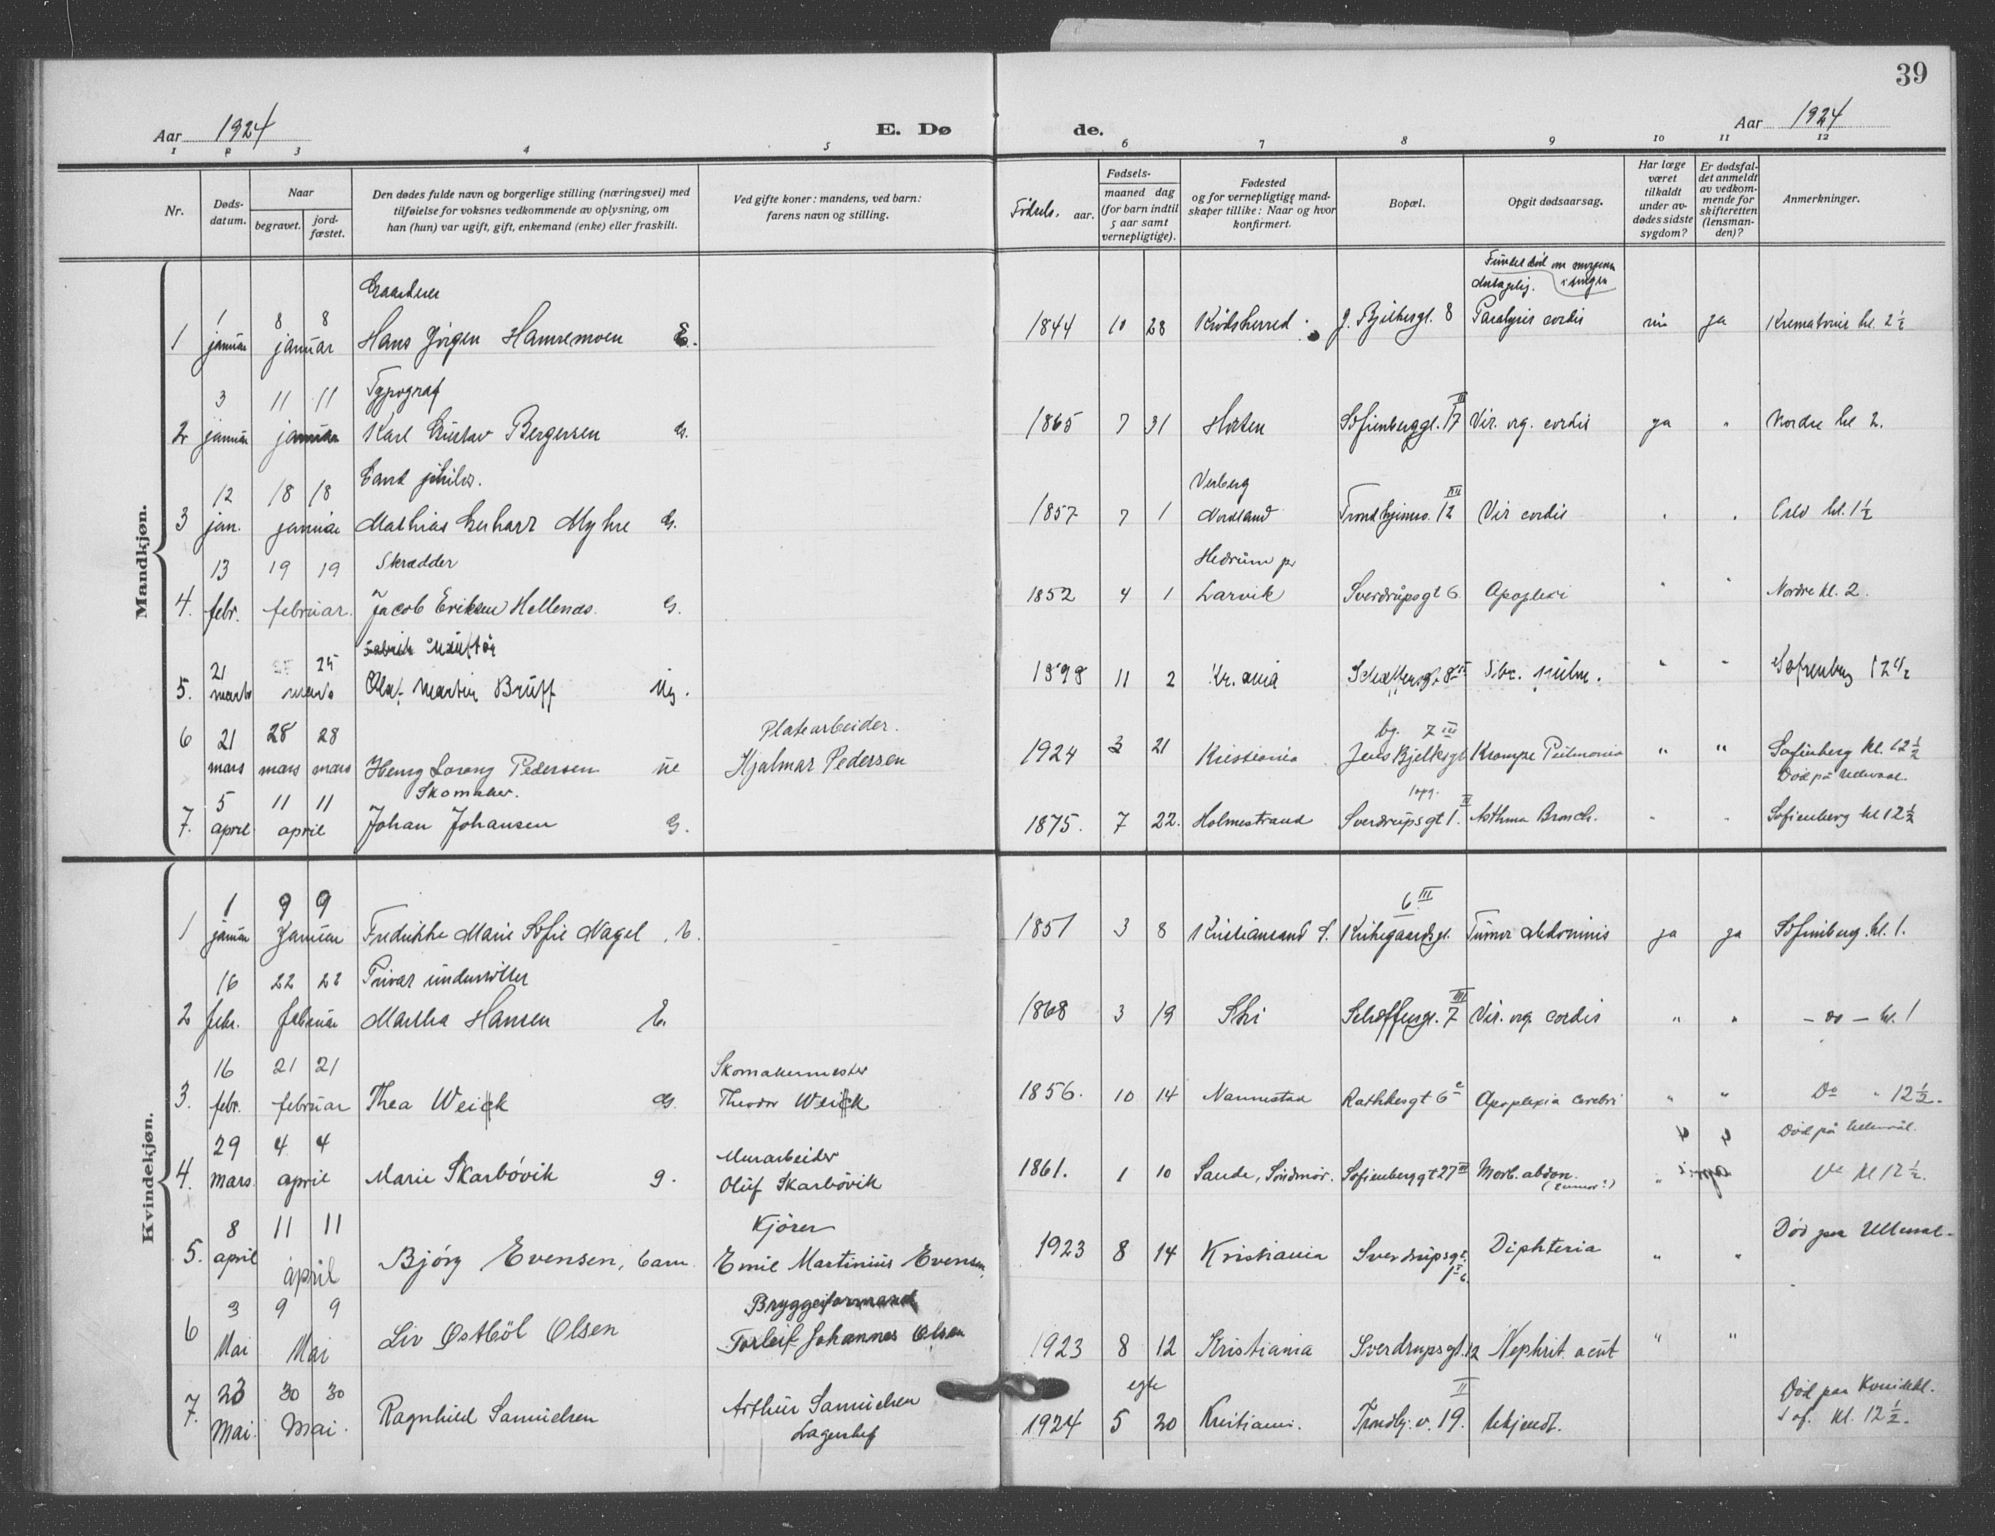 39
Aar 1924
E. Dø
de.
Aar 1924
1 2 3 4 5 6 7 8 9 10 11 12
Nr.
Døds-
datum.
Naar
begravet.
jord-
fæstet.
Den dødes fulde navn og borgerlige stilling (næringsvei) med
tilføielse for voksnes vedkommende av oplysning, om
han (hun) var ugift, gift, enkemand (enke) eller fraskilt.
Ved gifte koner: mandens, ved barn:
farens navn og stilling.
Fødsels-
aar.
Fødsels-
maaned dag
(for barn indtil
5 aar samt
vernepligtige).
Fødested
og for vernepligtige mand-
skaper tillike: Naar og hvor
konfirmert.
Bopæl.
Opgit dødsaarsag.
Har læge
været
tilkaldt
under av-
dødes sidste
sygdom?
Er dødsfal-
det anmeldt
av vedkom-
mende for
skifteretten
(lensman-
den)?
Anmerkninger.
Mandkjøn.
1 8 8 Gaardeier Fundet død om morgenen
antagelig. i sengen
1 januar januar Hans Jörgen Hamremoen E. 1844 10 28 Krödsherred J. Bjelkesgt. 8 Paralysis cordis nei ja Krematoriet kl. 2 1/2
3 11 11 Typograf
2 januar januar Karl Gustav Bergersen G. 1865 7 31 Horten Sofienberggt. 17 III Vit. org. cordis ja " Nordre kl 2.
12 18 18 Cand philos.
Nordland
3 jan. januar Mathias Gerhard Myhre G. 1857 7 1 Trondhjemsv. 12 III Vit cordis " " Oslo kl. 1 1/2
13 19 19 Skrædder Hedrum pr
4. febr. februar. Jacob Eriksen Hellenæs. G. 1852 4 1 Larvik Sverdrupsgt 6 Apoplexi " " Nordre kl. 2.
21 25
5. marts marts Olaf Martin Bruff Ug. 1898 11 2 Kr.ania Schæffersgt. 8 III Tbc. pulm. " " Sofienberg 12 1/2
6 21 28 28 Platearbeider. bg. 7 III
mars mars mars Henry Lorang Pedersen Hjalmar Pedersen 1924 3 21 Kristiania Jens Bjelkesgt Krampe Pulmonia " " Sofienberg kl. 12 1/2
Død på Ullevaal.
5 11 11 Skomaker. 1 opg.
7. april april Johan Johansen G. 1875. 7 22. Holmestrand Sverdrupsgt 1. III Asthma Bronch. " " Sofienberg kl 12 1/2
Kvindekjøn.
1 9 9 6 III
1 januar Januar Fredrikke Marie Sofie Nagel E. 1851 3 8 Kristiansand S. Kirkegaardsgt. Tumor abdominis ja ja Sofienberg. kl. 1.
16 22 22 Privat understøttet
2 febr. februar Martha Hansen E. 1868 3 19 Ski Schæffersgt. 7 III Vit. org. cordis " " - do - kl. 1
16 21 21 Skomakermester
3. febr. februar Thea Weick G. Theodor Weick 1856. 10 14 Nannestad Rathkesgt 6 c Apoplexia cerebri " " Do " 12 1/2.
29 4 4 Murarbeider Død på Ullevaal.
4. mars. april Marie Skarbövik g. Oluf Skarbövik 1861. 1 10 Sande, Söndmör. Sofienberggt 27 III Morb. abdon. (tumor?) " Do kl 12 1/2.
8 11 11 Kjörer
5. april april Bjórg Evensen, barn Emil Martinius Evensen, 1923 8 14 Kristiania Sverdrupsgt. Diphteria " " Död paa Ullevaal.
3 9 9 Bryggeiformand
6 Mai Mai Liv Østböl Olsen Torleif Johannes Olsen 1923 8 12 Kristiania Sverdrupsgt. 12 Nephrit acut " "
23 30 30 Arthur Samuelsen egte II Död paa Kvindekl.
7. Mai Mai. Ragnhild Samuelsen Lagerchef 1924 5 20 Kristiania. Trondhj. v. 19. Ukjendt. Sof. kl. 12 1/2.